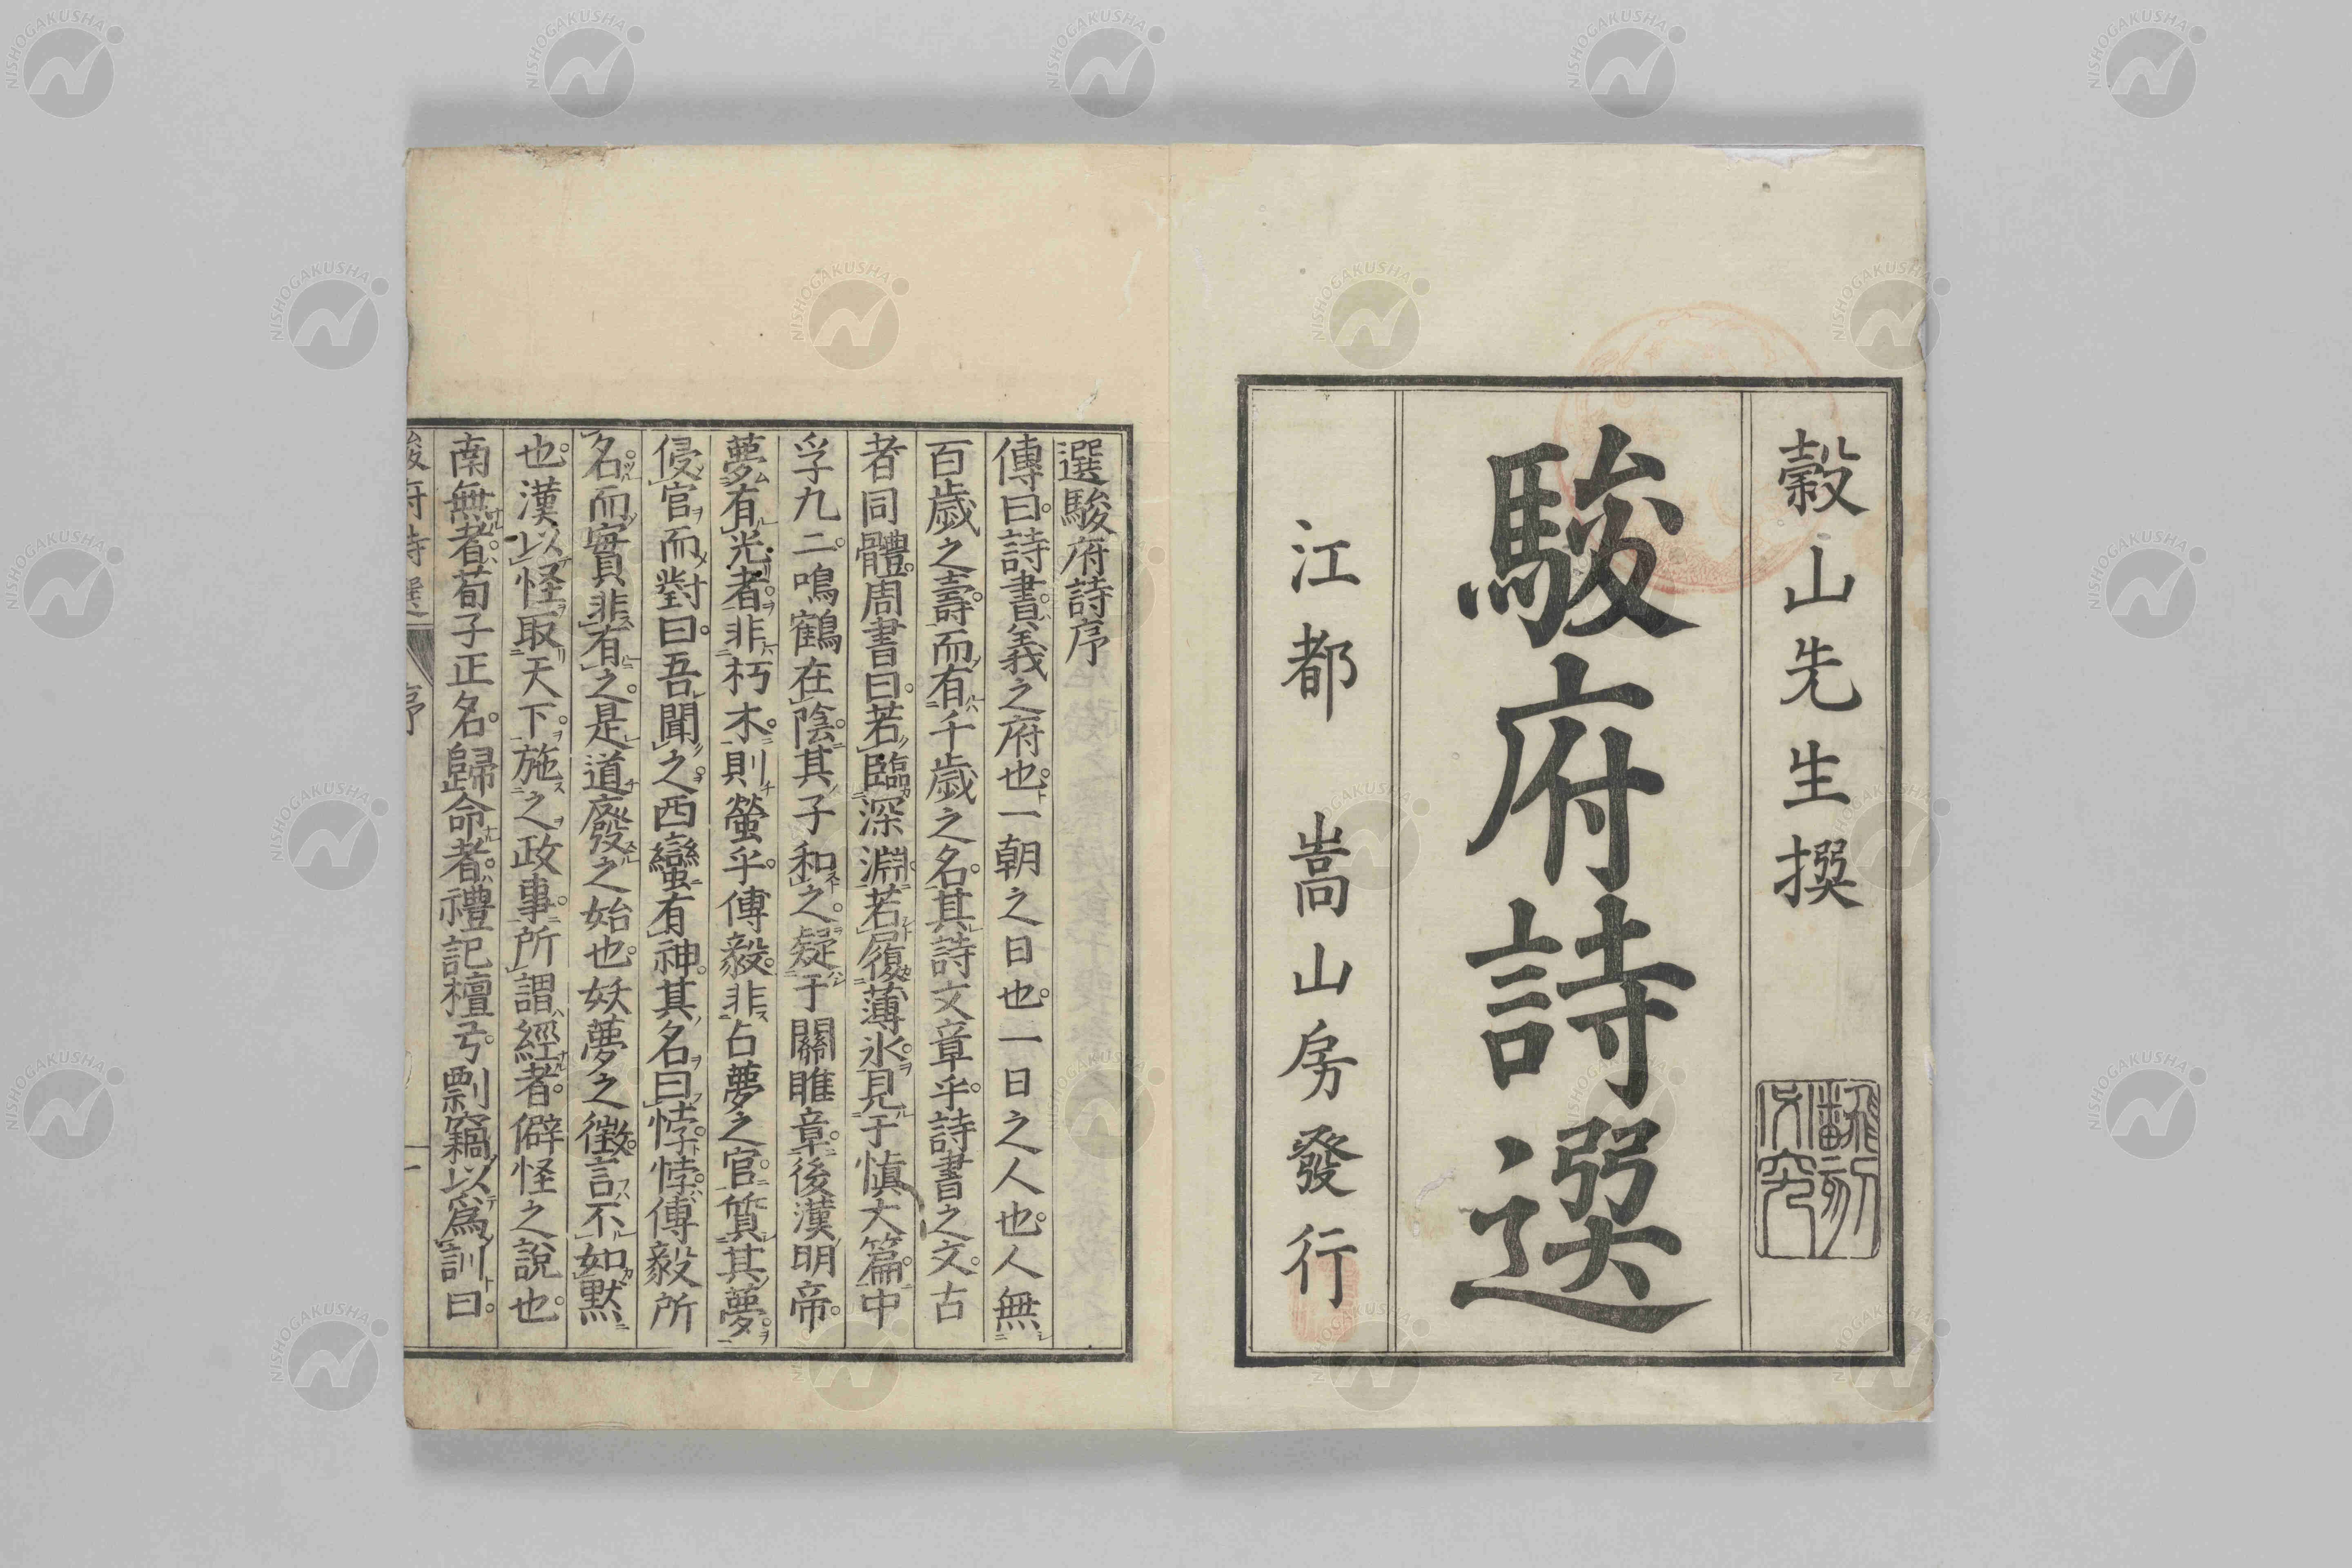 穀山先生撰
駿府詩選
江都 嵩山房發行
選駿府詩序
傳曰詩書義之府也一朝之日也一日之人也人無
百歲之壽而有千歲之名其詩文章乎詩書之文古
者同體周書曰若臨深淵若履薄氷見于慎大篇中
孚九二鳴鶴在陰其子和之疑于關雎章後漢明帝
夢有光者非朽木則螢乎傅毅非占夢之官質其夢
侵官而對曰吾聞之西蠻有神其名曰悖悖傅毅所
名而實非有之是道廢之始也妖夢之徵言不如默
也漢以怪取天下施之政事所謂經者僻怪之說也
南無者荀子正名歸命者禮記檀弓剽竊以爲訓曰
駿府詩選 序 一
NISHOGAKUSHA